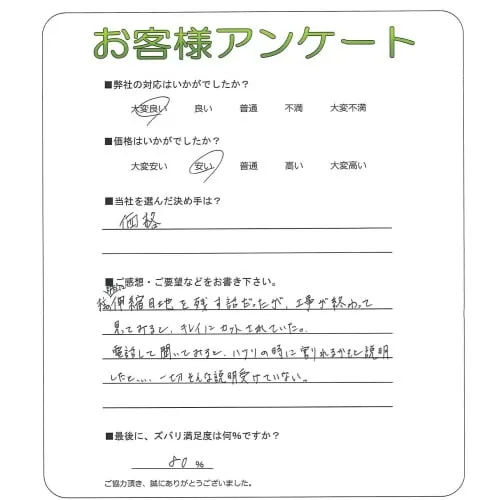 お客様アンケート
■弊社の対応はいかがでしたか？
大変良い 良い 普通 不満 大変不満
■価格はいかがでしたか？
大変安い 安い 普通 高い 大変高い
■当社を選んだ決め手は？
価格
■ご感想・ご要望などをお書き下さい。
伸縮目地を残す話だったが、工事が終わって
見てみると、キレイにカットされていた。
電話して聞いてみると、ハツリの時に割れるかもと説明
したと、、、一切そんな説明受けていない。
■最後に、ズバリ満足度は何%ですか？
80 %
ご協力頂き、誠にありがとうございました。